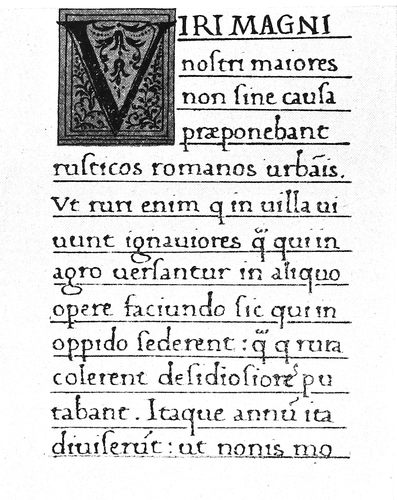 VIRI MAGNI
noſtri maiores
non ſine cauſa
præponebant
ruſticos romanos urbāis.
Vt ruri enim q in uilla ui
uunt ignauiores q̃ qui in
agro uerſantur in aliquo
opere faciundo ſic qui in
oppido ſederent : q̃ q rura
colerent deſidioſiores pu
tabant . Itaque annū ita
diuiſerūt : ut nonis mo